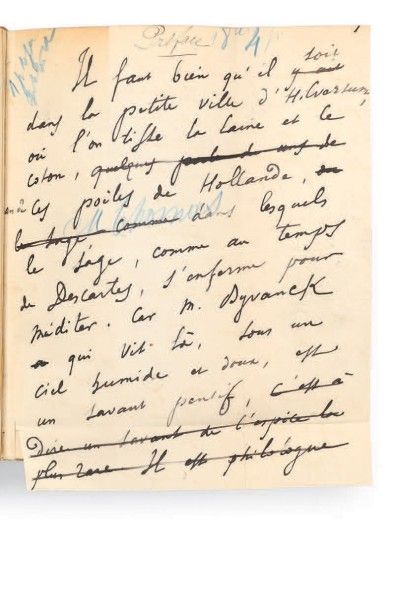 Préface
Il faut bien qu'il y ait soit
dans la petite ville d'Hilversum,
où l'on tisse la laine et le
coton, quelques
un de ces poiles de Hollande,
le sage comme dans lesquels
le sage, comme au temps
de Descartes, s'enferme pour
méditer. Car M. Byvanck
qui vit là, sous un
ciel humide et doux, est
un savant pensif, c'est à
dire un savant de l'espèce la
plus rare Il est philologue